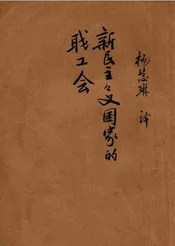 新民主々义国家的
职工会
杨慧琳 译